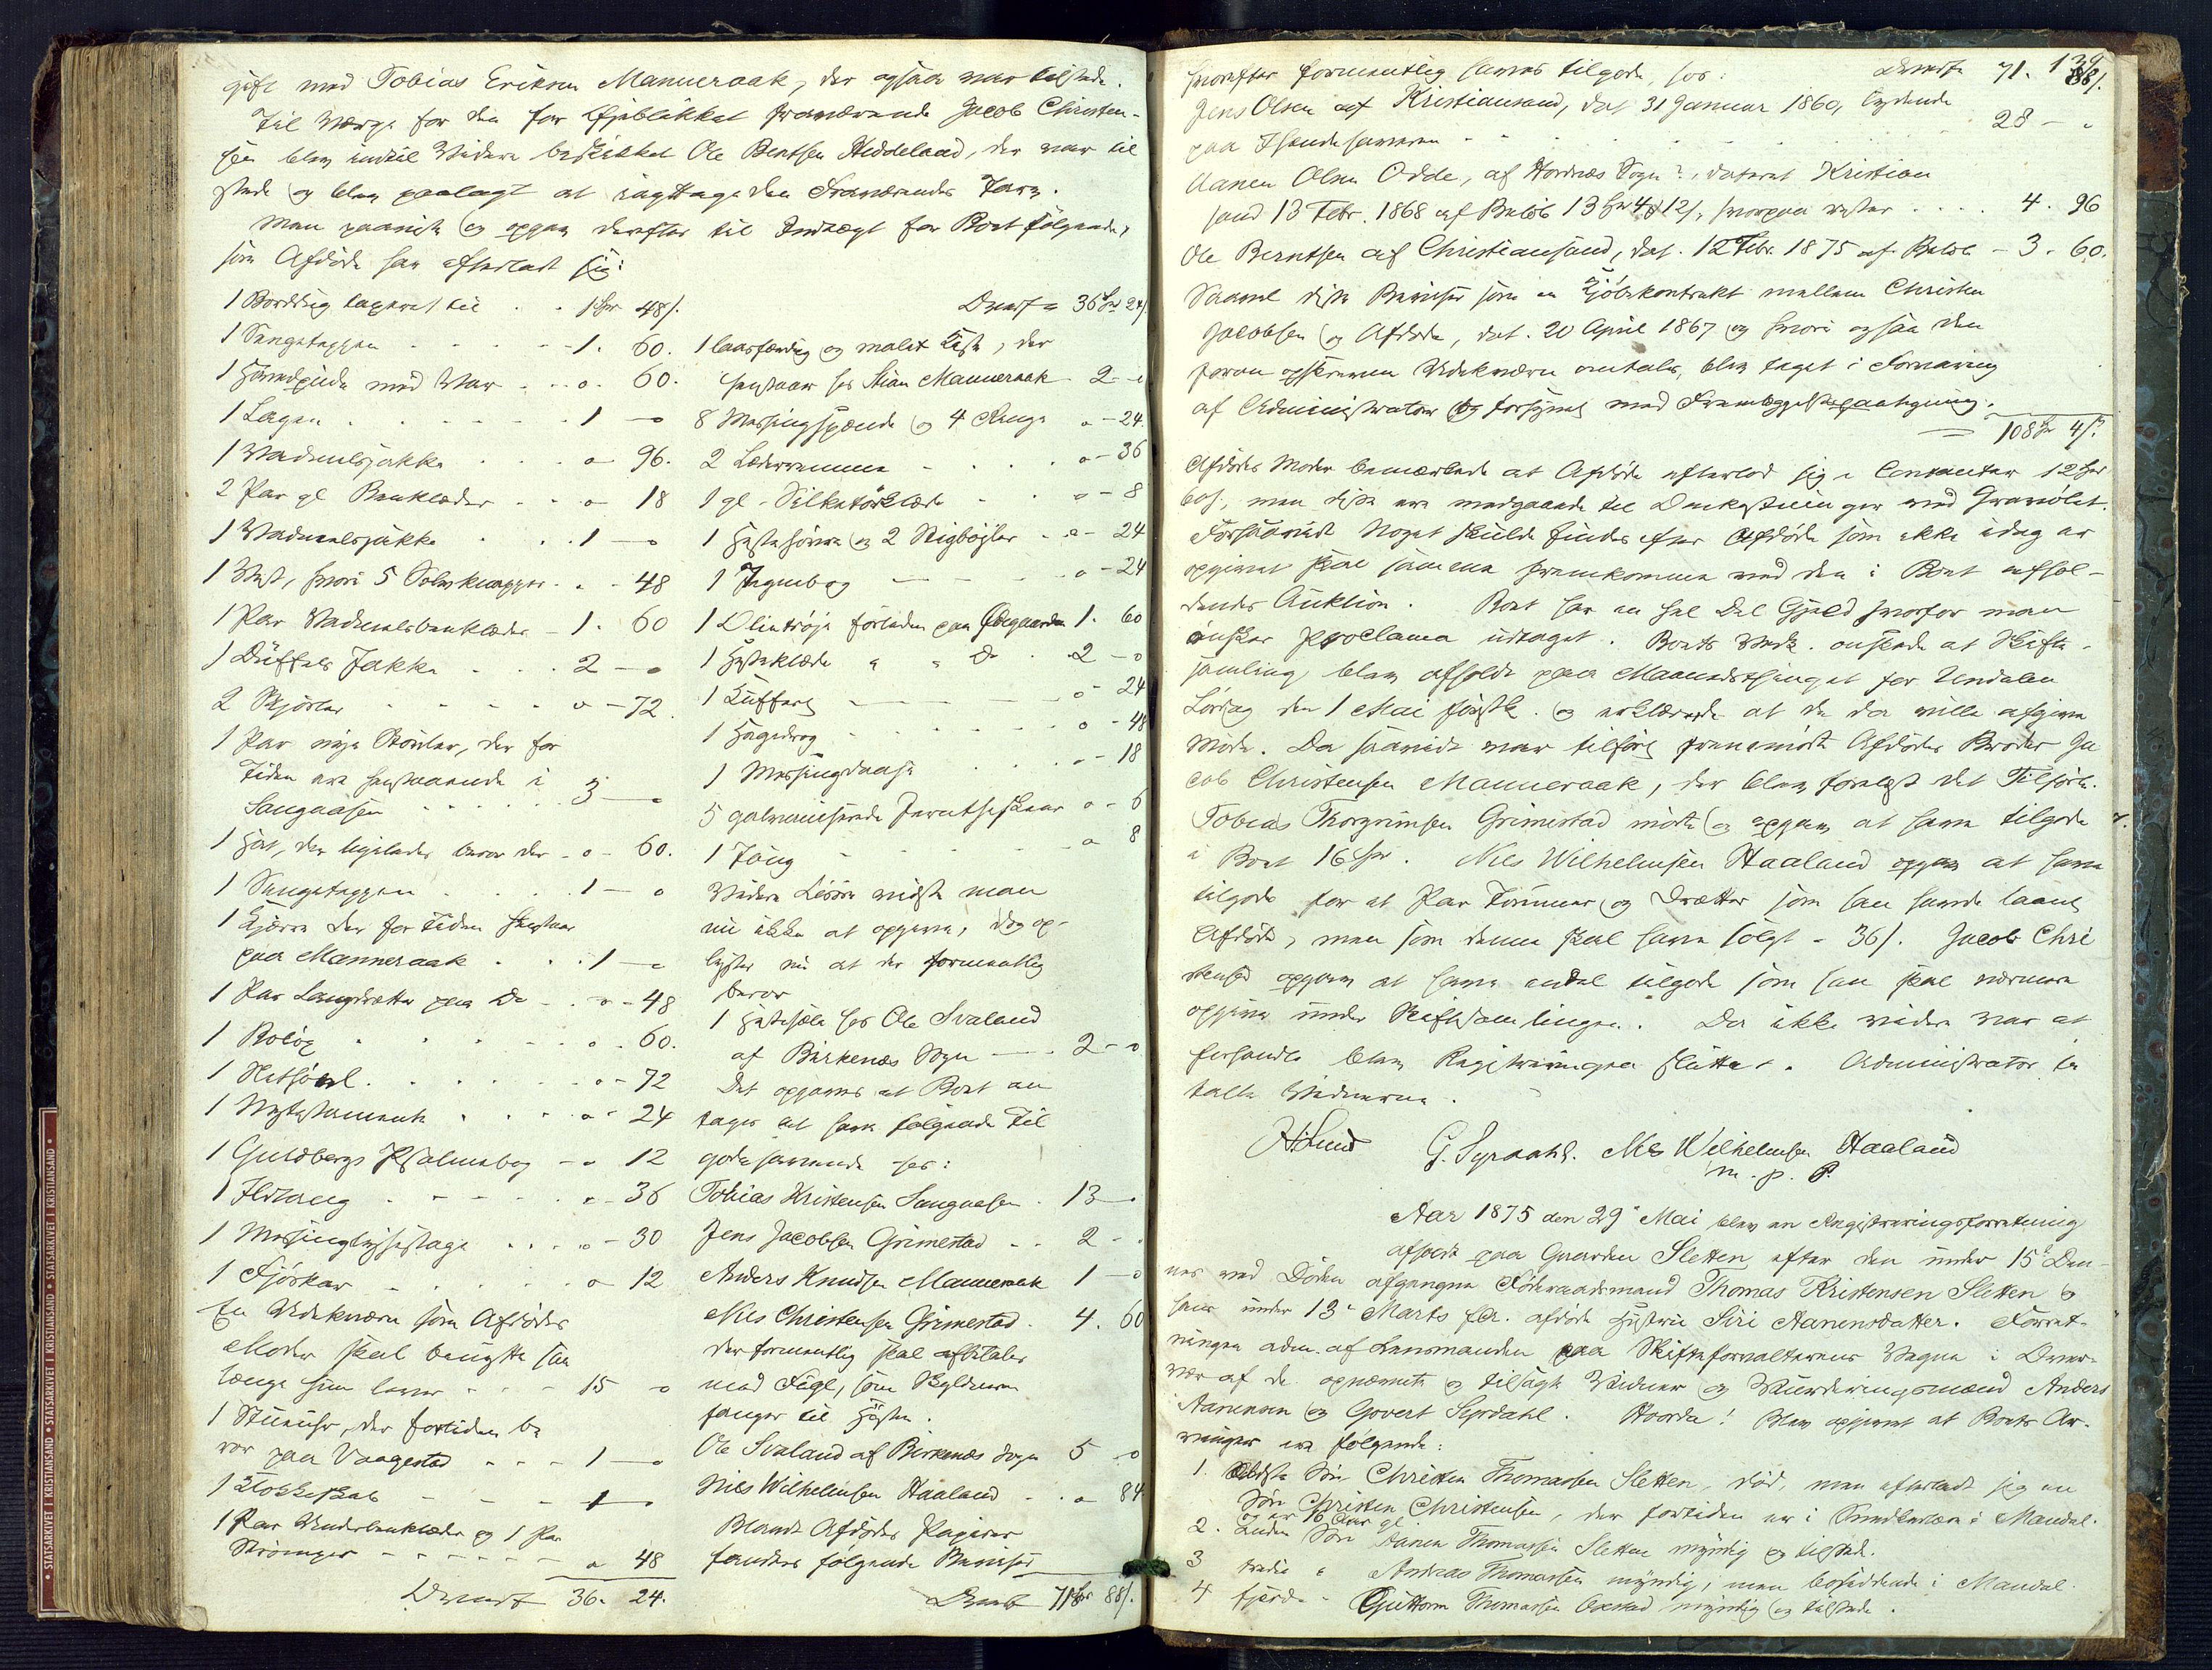 gift med Tobias Eriksen Manneraak, der ogsaa var tilstede.
Til Værge for den for Øjeblikket fraværende Jacob Christen-
sen blev indtil Videre beskikket Ole Bentsen Heddeland, der var til
stede og blev paalagt at iagttage den Fraværendes Tarv.
Man paaviste og opgav derefter til Indtægt for Boet følgende,
som Afdøde har efterladt sig:
1 Sengetæppe 1. 60.
1 Hovedpude med Vaar o. 60.
1 Lagen 1 - o
1 Vadmelsjakke o - 96.
2 Par gl Benklæder o - 18
1 Vadmelsjakke 1 - o
1 Vest, hvori 5 Sølvknapper - 48
1 Par Vadmelsbenklæder - 1. 60
1 Düffels Jakke 2 - o
2 Skjorter o - 72.
1 Par nye Støvler, der for
Tiden ere henstaaende i
Sangaasen 3 - o
1 Hat, der ligeledes beror der - o - 60.
1 Sengetæppe 1 - o
1 Kjærre der for Tiden henstaar
paa Manneraak 1 - o
1 Par Langdrætter paa Do - o - 48
1 Boløx o - 60.
1 Høvl o - 72
1 Nytestamente o - 24
1 Guldbergs Psalmebog - o 12
1 Ildtang o - 36
1 Messinglysestage o - 30
1 Fjørkar o 12
En Vedeknærn som Afdødes
Moder skal benytte saa
længe hun lever 15 o
1 Stueuhr, der fortiden be
ror paa Vaagestad 1 - o
1 Klokkeskab 1 - o
1 Par Underbenklæder og 1 Par
Strømper o 48
Transp 36. 24.
Transp = 36 Spd 24/.
1 laasfærdig og malet Kiste, der
henstaar hos Stian Manneraak 2 - o
8 Messingspænde og 4 Ringe o - 24.
2 Læderremme o - 36
1 gl. Silketørklæde o - 8
2 Stigbøjler o - 24
1 Tegnebog o - 24
1 Olietrøje forladen paa Øvregaarden 1. 60
1 Hesteklæde " " Do 2 - o
1 Kuffert o - 24
1 Hagedrog o - 48
1 Messingdaase o - 18
5 galvaniserede Jerntheskeer o - 6
1 Tang o 8
Videre Løsøre vidste man
nu ikke at opgive, dog op-
lystes nu at der formentlig
beror
1 Hestesele hos Ole Svaland
af Birkenæs Sogn 2 - o
Det opgaves at Boet an
tages at have følgende til
godehavende hos:
Tobias Kristensen Sangaasen 13 - o
Jens Jacobsen Grimestad 2 -
Anders Knudsen Manneraak 1 - o
Nils Christensen Grimestad 4. 60
der formentlig skal afbetales
med Fugl, som Skyldneren
fanger til Høsten.
Ole Svaland af Birkenæs Sogn 5 - o
Niels Wilhelmsen Haaland o 84
Blandt Afdødes Papirer
fandtes følgende Beviser
Transp 71 Spd 88/.
139
hvorefter formentlig haves tilgode hos: Transp 71. 88/.
Jens Olsen af Kristiansand, dat 31 Januar 1860, lydende
28 -
Aanen Olsen Odde, af Hordnæs Sogn?, dateret Kristian
sand 13 Febr. 1868 af Beløb 13 Spd 4 12/, hvorpaa rester 4. 96
Ole Berntsen af Christiansand, dat. 12 Febr. 1875 af Beløb - 3. 60.
Saavel disse Beviser som en Kjøbekontrakt mellem Christen
Jacobsen og Afdøde, dat. 20 April 1867 og hvori ogsaa den
foran opskrevne Vedeknærn omtales, blev taget i Forvaring
af Administrator og forsynet med Fremlæggelsespaategning.
108 Spd 4/.
Afdødes Moder bemærkede at Afdøde efterlod sig i Contanter 12 Spd
60/, men disse ere medgaaede til Omkostninger med Gravølet.
Forsaavidt Noget skulde findes efter Afdøde som ikke idag er
opgivet skal samme fremkomme ved den i Boet afhol-
dendes Auktion. Boet har en hel Del Gjæld hvorfor man
ønsker proclama udtaget. Boets Vedk. ønskede at Skifte-
samling blev afholdt paa Maanedsthinget for Undalen
Lørdag den 1 Mai førstk. og erklærede at de da ville afgive
Møde. Da saavidt var tilført fremmødte Afdødes Broder Ja
cob Christensen Manneraak, der blev forelæst det Tilførte.
Tobias Thorgrimsen Grimestad mødte og opgav at have tilgode
i Boet 16 Spd. Nils Wilhelmsen Haaland opgav at have
tilgode for et Par Tømmer og Drætter som han havde laant
Afdøde, men som denne skal have solgt - 36/. Jacob Chri
stensen opgav at have endel tilgode som han skal nærmere
opgive under Skiftesamlingen. Da ikke videre var at
forhandle blev Registreringen sluttet. Administrator be
talte Vidnerne.
G. Syrdahl. Nils Wilhelmsen Haaland
m. p. P.
Aar 1875 den 29de Mai blev en Registreringsforretning
afholdt paa Gaarden Sletten efter den under 15de Den-
nes ved Døden afgangne Føderaadsmand Thomas Kristensen Sletten og
hans under 13de Marts f.A. afdøde Hustru Siri Aanensdatter. Forret-
ningen adm. af Lensmanden paa Skifteforvalterens Vegne i Overv-
vær af de opnævnte og tilsagte Vidner og Vurderingsmænd Anders
Aanensen og Govert Syrdahl. Hvorda! Blev opgivet at Boets Ar-
vinger ere følgende:
1. Ældste Søn Christen Thomassen Sletten, død, men efterladt sig en
Søn Christen Christensen, der fortiden er i Smedlære i Mandal.
og er 16 Aar gl
2. Anden Søn Aanen Thomassen Sletten myndig og tilsted.
3 tredie " Andreas Thomassen myndig, men bosiddende i Mandal.
4 fjerde " Guttorm Thomassen myndig og tilstede.
• STATSARKIVET I KRISTIANSAND • STATSARKIVET I KRISTIANSAND • STATSARKIVET I KRISTIANSAND •